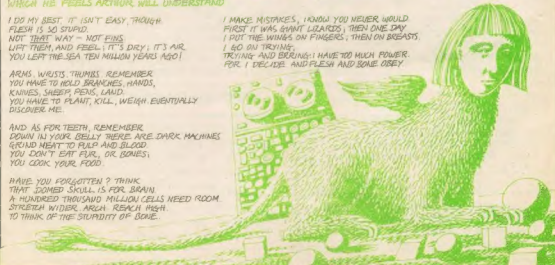 WHICH HE FEELS ARTHUR WILL UNDERSTAND
I DO MY BEST. IT ISN'T EASY, THOUGH.
FLESH IS SO STUPID.
NOT THAT WAY – NOT FINS.
LIFT THEM, AND FEEL; IT'S DRY; IT'S AIR.
YOU LEFT THE SEA TEN MILLION YEARS AGO!
ARMS. WRISTS. THUMBS. REMEMBER
YOU HAVE TO HOLD BRANCHES, HANDS,
KNIVES, SHEEP, PENS, LAND.
YOU HAVE TO PLANT, KILL, WEIGH, EVENTUALLY
DISCOVER ME.
AND AS FOR TEETH, REMEMBER
DOWN IN YOUR BELLY THERE ARE DARK MACHINES
GRIND MEAT TO PULP AND BLOOD.
YOU DON'T EAT FUR, OR BONES;
YOU COOK YOUR FOOD.
HAVE YOU FORGOTTEN? THINK
THAT DOMED SKULL IS FOR BRAIN.
A HUNDRED THOUSAND MILLION CELLS NEED ROOM.
STRETCH WIDER, ARCH. REACH HIGH
TO THINK OF THE STUPIDITY OF BONE.
I MAKE MISTAKES, I KNOW YOU NEVER WOULD.
FIRST IT WAS GIANT LIZARDS; THEN ONE DAY
I PUT THE WINGS ON FINGERS; THEN ON BREASTS.
I GO ON TRYING,
TRYING AND ERRING: I HAVE TOO MUCH POWER.
FOR I DECIDE AND FLESH AND BONE OBEY.